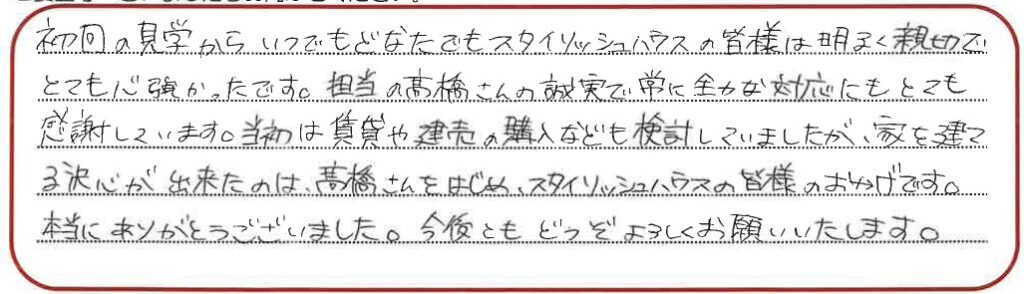 初回の見学から いつでもどなたでもスタイリッシュハウスの皆様は明るく親切で
とても心強かったです。担当の髙橋さんの誠実で常に全力な対応にもとても
感謝しています。当初は賃貸や建売の購入なども検討していましたが、家を建て
る決心が出来たのは、髙橋さんをはじめ、スタイリッシュハウスの皆様のおかげです。
本当にありがとうございました。今後とも どうぞよろしくお願いいたします。